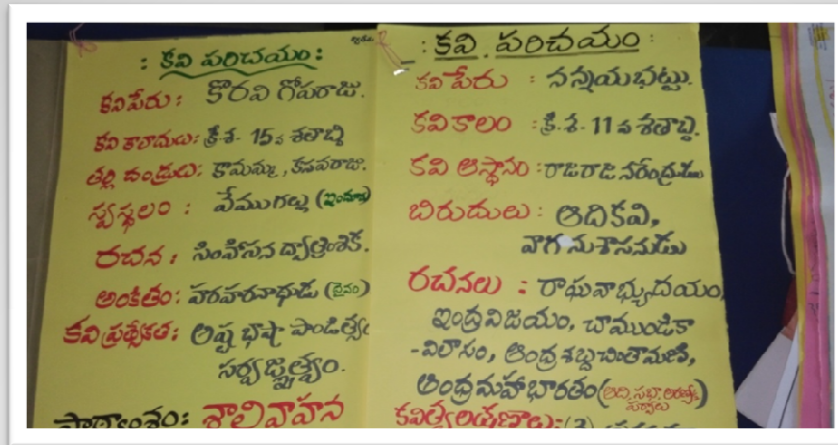 : కవి పరిచయం :
కవిపేరు : కొరవి గోపరాజు.
కవి కాలాదులు: క్రీ.శ. 15వ శతాబ్ది
తల్లి దండ్రులు: కామమ్మ, కసవరాజు.
స్వస్థలం : వేములగల్లు
రచన : సింహాసన ద్వాత్రింశిక.
అంకితం: హరహరనాథుడు (దైవం)
కవి ప్రత్యేకత: అష్ట భాషా పాండిత్యం
సర్వజ్ఞత్వం.
పాఠ్యాంశం: శాలివాహన
: కవి పరిచయం :
కవి పేరు : నన్నయభట్టు.
కవికాలం : క్రీ.శ. 11వ శతాబ్ది.
కవి ఆస్థానం : రాజరాజ నరేంద్రుడు
బిరుదులు : ఆదికవి,
వాగనుశాసనుడు
రచనలు : రాఘవాభ్యుదయం,
ఇంద్రవిజయం, చాముండికా
-విలాసం, ఆంధ్రశబ్దచింతామణి,
ఆంధ్రమహాభారతం (ఆది, సభా, అరణ్య
పర్వాలు)